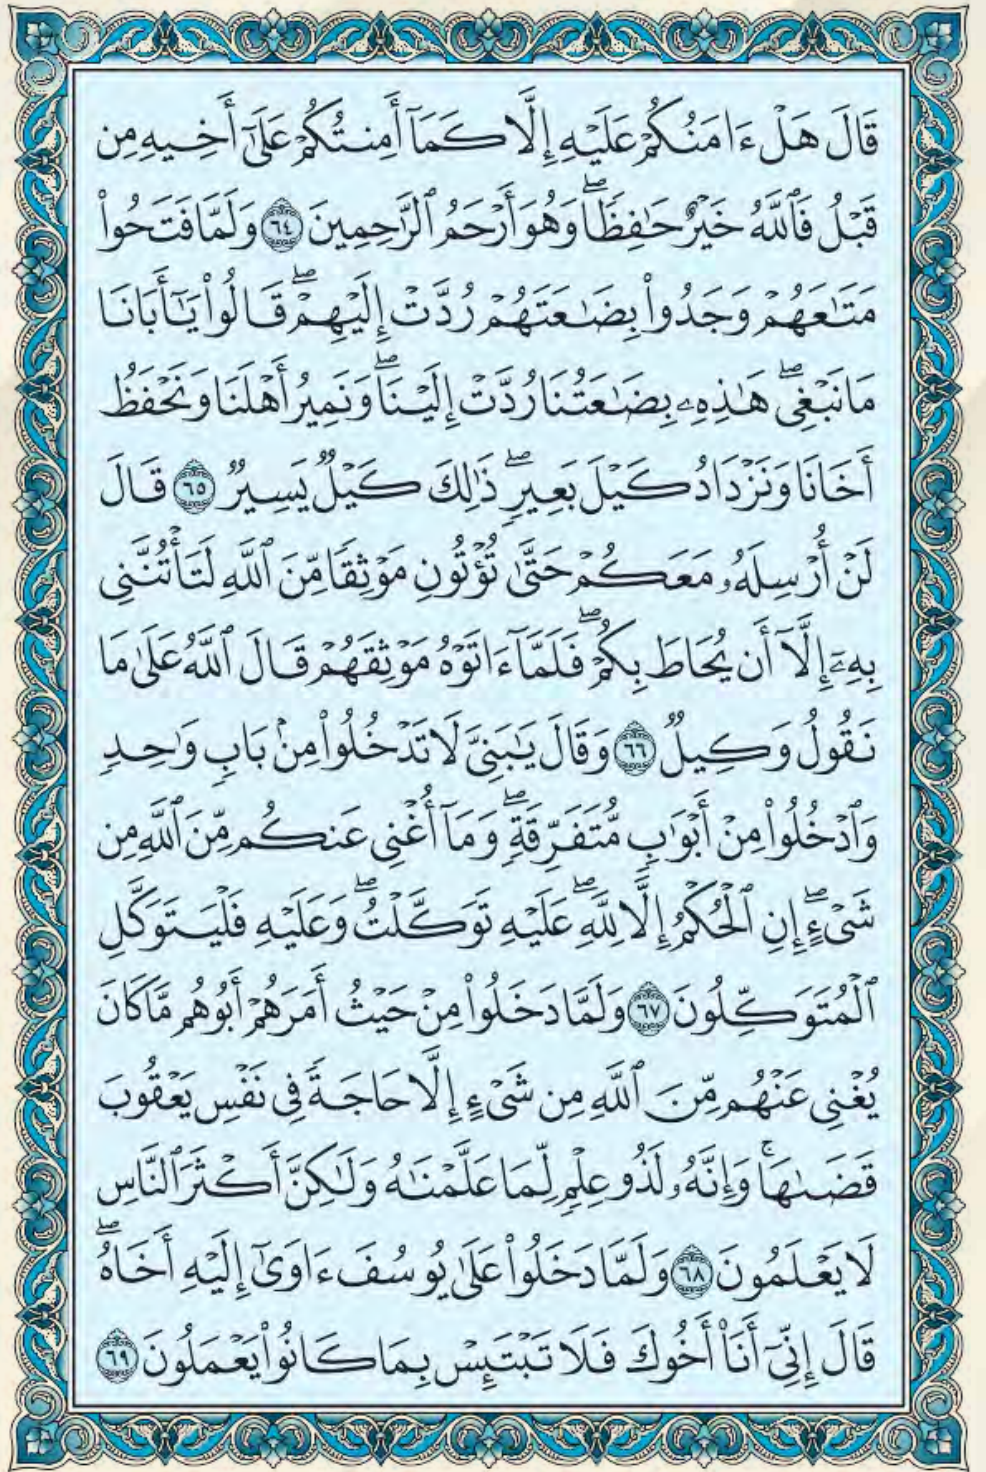 قَالَ هَلْ ءَامَنُكُمْ عَلَيْهِ إِلَّا كَمَآ أَمِنتُكُمْ عَلَىٰٓ أَخِيهِ مِن
قَبْلُ فَٱللَّهُ خَيْرٌ حَٰفِظٗاۖ وَهُوَ أَرْحَمُ ٱلرَّٰحِمِينَ ٦٤ وَلَمَّا فَتَحُوا۟
مَتَٰعَهُمْ وَجَدُوا۟ بِضَٰعَتَهُمْ رُدَّتْ إِلَيْهِمْۖ قَالُوا۟ يَٰٓأَبَانَا
مَا نَبْغِىۖ هَٰذِهِۦ بِضَٰعَتُنَا رُدَّتْ إِلَيْنَاۖ وَنَمِيرُ أَهْلَنَا وَنَحْفَظُ
أَخَانَا وَنَزْدَادُ كَيْلَ بَعِيرٖۖ ذَٰلِكَ كَيْلٞ يَسِيرٞ ٦٥ قَالَ
لَنْ أُرْسِلَهُۥ مَعَكُمْ حَتَّىٰ تُؤْتُونِ مَوْثِقٗا مِّنَ ٱللَّهِ لَتَأْتُنَّنِى
بِهِۦٓ إِلَّآ أَن يُحَاطَ بِكُمْۖ فَلَمَّآ ءَاتَوْهُ مَوْثِقَهُمْ قَالَ ٱللَّهُ عَلَىٰ مَا
نَقُولُ وَكِيلٞ ٦٦ وَقَالَ يَٰبَنِىَّ لَا تَدْخُلُوا۟ مِنۢ بَابٖ وَٰحِدٖ
وَٱدْخُلُوا۟ مِنْ أَبْوَٰبٖ مُّتَفَرِّقَةٖۖ وَمَآ أُغْنِى عَنكُم مِّنَ ٱللَّهِ مِن
شَىْءٍۖ إِنِ ٱلْحُكْمُ إِلَّا لِلَّهِۖ عَلَيْهِ تَوَكَّلْتُۖ وَعَلَيْهِ فَلْيَتَوَكَّلِ
ٱلْمُتَوَكِّلُونَ ٦٧ وَلَمَّا دَخَلُوا۟ مِنْ حَيْثُ أَمَرَهُمْ أَبُوهُم مَّا كَانَ
يُغْنِى عَنْهُم مِّنَ ٱللَّهِ مِن شَىْءٍ إِلَّا حَاجَةٗ فِى نَفْسِ يَعْقُوبَ
قَضَىٰهَاۚ وَإِنَّهُۥ لَذُو عِلْمٖ لِّمَا عَلَّمْنَٰهُ وَلَٰكِنَّ أَكْثَرَ ٱلنَّاسِ
لَا يَعْلَمُونَ ٦٨ وَلَمَّا دَخَلُوا۟ عَلَىٰ يُوسُفَ ءَاوَىٰٓ إِلَيْهِ أَخَاهُۖ
قَالَ إِنِّىٓ أَنَا۠ أَخُوكَ فَلَا تَبْتَئِسْ بِمَا كَانُوا۟ يَعْمَلُونَ ٦٩